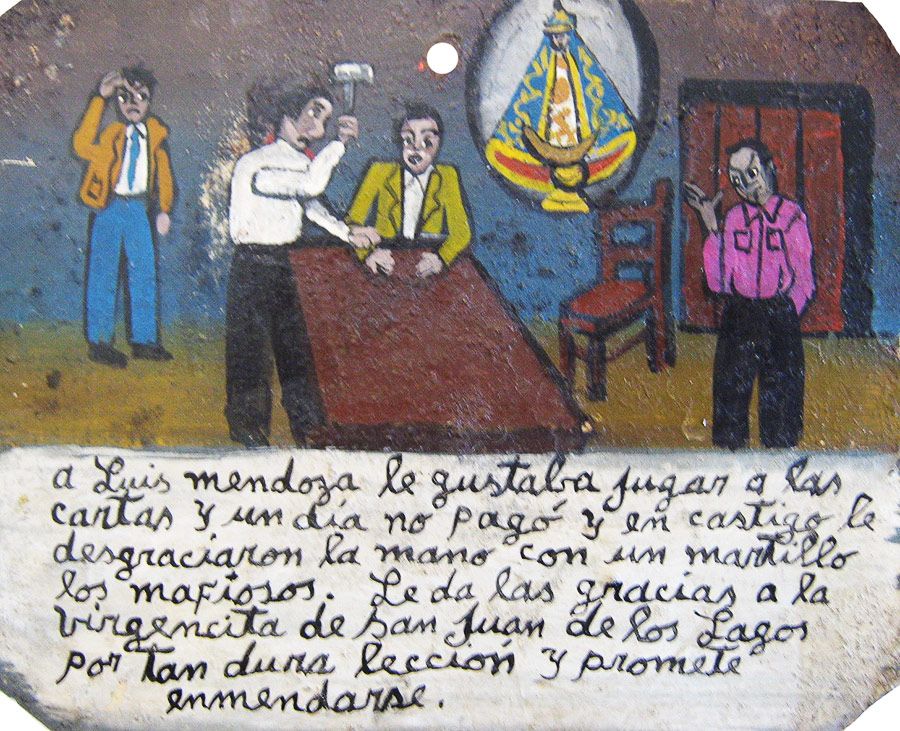 a Luis mendoza le gustaba jugar a las
cartas y un día no pagó y en castigo le
desgraciaron la mano con un martillo
los mafiosos. Le da las gracias a la
virgencita de San Juan de los Lagos
por tan dura lección y promete
enmendarse.